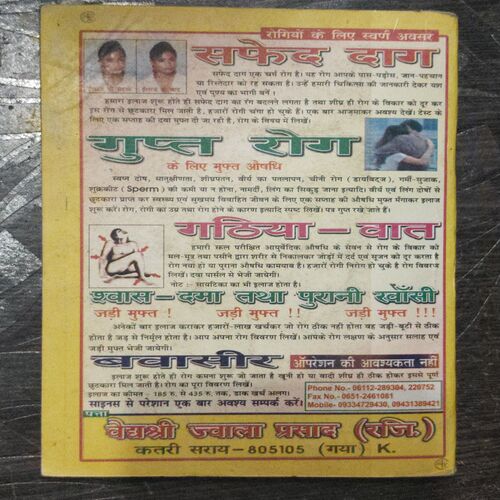 रोगियों के लिए स्वर्ण अवसर
सफेद दाग
इलाज के पहले
इलाज के बाद
सफेद दाग एक चर्म रोग है। यह रोग आपके पास-पड़ोस, जान-पहचान
या रिस्तेदार को रह सकता है। उन्हें हमारी चिकित्सा की जानकारी देकर यश
एवं पुण्य का भागी बनें ।
हमारा इलाज शुरू होते ही सफेद दाग का रंग बदलने लगता है तथा शीघ्र ही रोग के विकार को दूर कर
इस रोग से छुटकारा मिल जाती है, हजारों रोगी चांगा हो चुके हैं। एक बार आजमाकर अवश्य देखें। टेस्ट के
लिए एक सप्ताह की दवा मुफ्त दी जा रही है, रोग के विषय में लिखें।
गुप्त रोग
के लिए मुफ्त औषधि
स्वप्न दोष, धातुक्षीणता, शीघ्रपतन, वीर्य का पतलापन, चीनी रोग (डायबिट्ज), गर्मी-सुजाक,
शुक्रकीट (Sperm) की कमी या न होना, नामर्दी, लिंग का सिकुड़ जाना इत्यादि। वीर्य एवं लिंग दोषों से
छुटकारा प्राप्त कर स्वास्थ्य एवं सुखमय विवाहित जीवन के लिए एक सप्ताह की औषधि मुफ्त मँगाकर इलाज
शुरू करें। रोग, रोगी का उम्र तथा रोग होने के कारण इत्यादि स्पष्ट लिखें। पत्र गुप्त रखे जाते हैं।
गठिया – वात
हमारी सफल परीक्षित आयुर्वेदिक औषधि के सेवन से रोग के विकार को
मल-मूत्र तथा पसीने द्वारा शरीर से निकालकर जोड़ों में दर्द एवं सूजन को दूर करता है
रोग नया हो या पुराना औषधि कामयाब है। हजारों रोगी निरोग हो चुके है रोग विवरण
लिखें। दवा पार्सल से भेजी जायेगी।
नोट :- सायटिका का भी इलाज होता है।
श्वास – दमा तथा पुरानी खाँसी
जड़ी मुफ्त ! जड़ी मुफ्त !! जड़ी मुफ्त !!!
अनेकों बार इलाज कराकर हजारों-लाख खर्चकर जो रोग ठीक नहीं होता वह जड़ी-बूटी से ठीक
होता है जड़ से निर्मूल होता है। आप अपना रोग विवरण लिखें। आपके रोग लक्षण के अनुसार सलाह एवं
जड़ी मुफ्त भेजी जायेगी।
बवासीर
ऑपरेशन की आवश्यकता नहीं
इलाज शुरू होते ही रोग कमना शुरू जो जाता है खूनी हो या बादी शीघ्र ही ठीक होकर इससे पूर्ण
छूटकारा मिल जाती है। रोग का पूरा विवरण लिखें।
इलाज का कीमत - 185 रु. से 435 रु. तक, डाक खर्च अलग।
साइनस से परेशान एक बार अवश्य सम्पर्क करें।
Phone No.- 06112-289304, 220752
Fax No.- 0651-2461081
Mobile- 09334729430, 09431389421
पता
वैद्यश्री ज्वाला प्रसाद (रजि.)
कतरी सराय–805105 (गया) K.